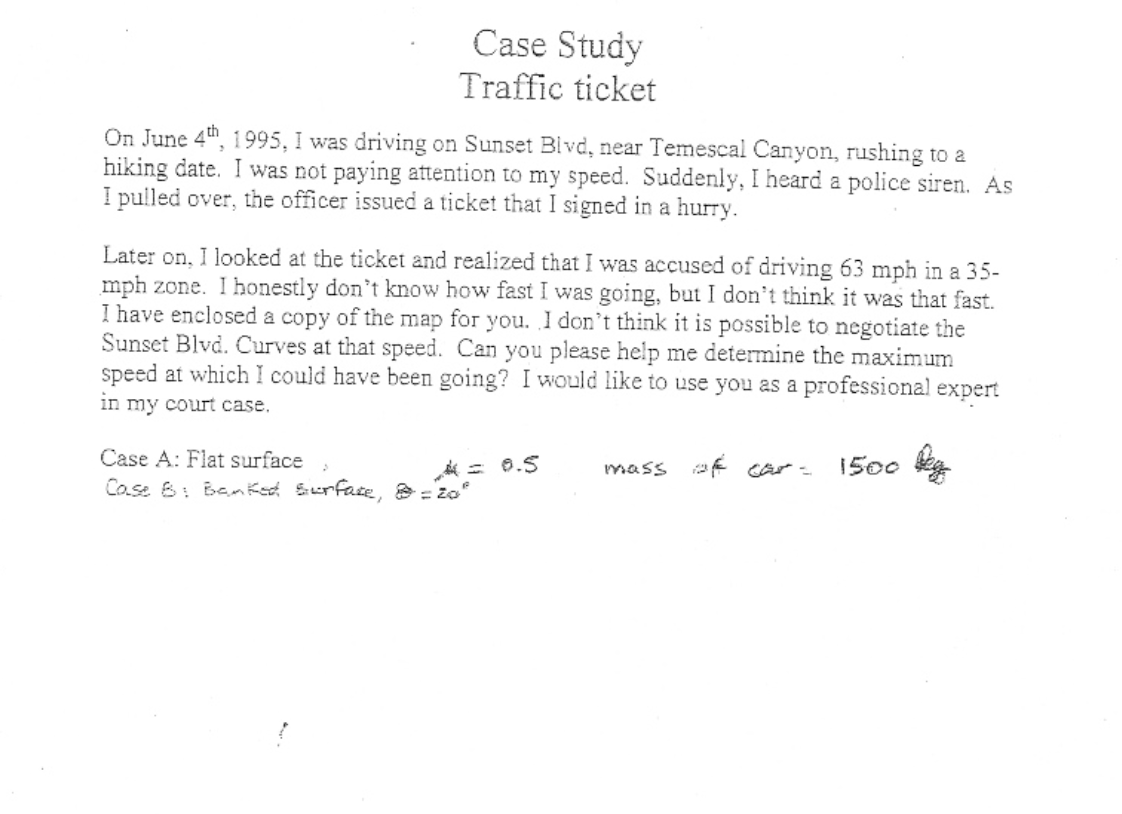 Case Study
Traffic ticket
On June 4th, 1995, I was driving on Sunset Blvd, near Temescal Canyon, rushing to a
hiking date. I was not paying attention to my speed. Suddenly, I heard a police siren. As
I pulled over, the officer issued a ticket that I signed in a hurry.
Later on, I looked at the ticket and realized that I was accused of driving 63 mph in a 35-
mph zone. I honestly don't know how fast I was going, but I don't think it was that fast.
I have enclosed a copy of the map for you. I don't think it is possible to negotiate the
Sunset Blvd. Curves at that speed. Can you please help me determine the maximum
speed at which I could have been going? I would like to use you as a professional expert
in my court case.
Case A: Flat surface μ = 0.5 mass of car = 1500 kg
Case B: Banked surface, θ = 20°